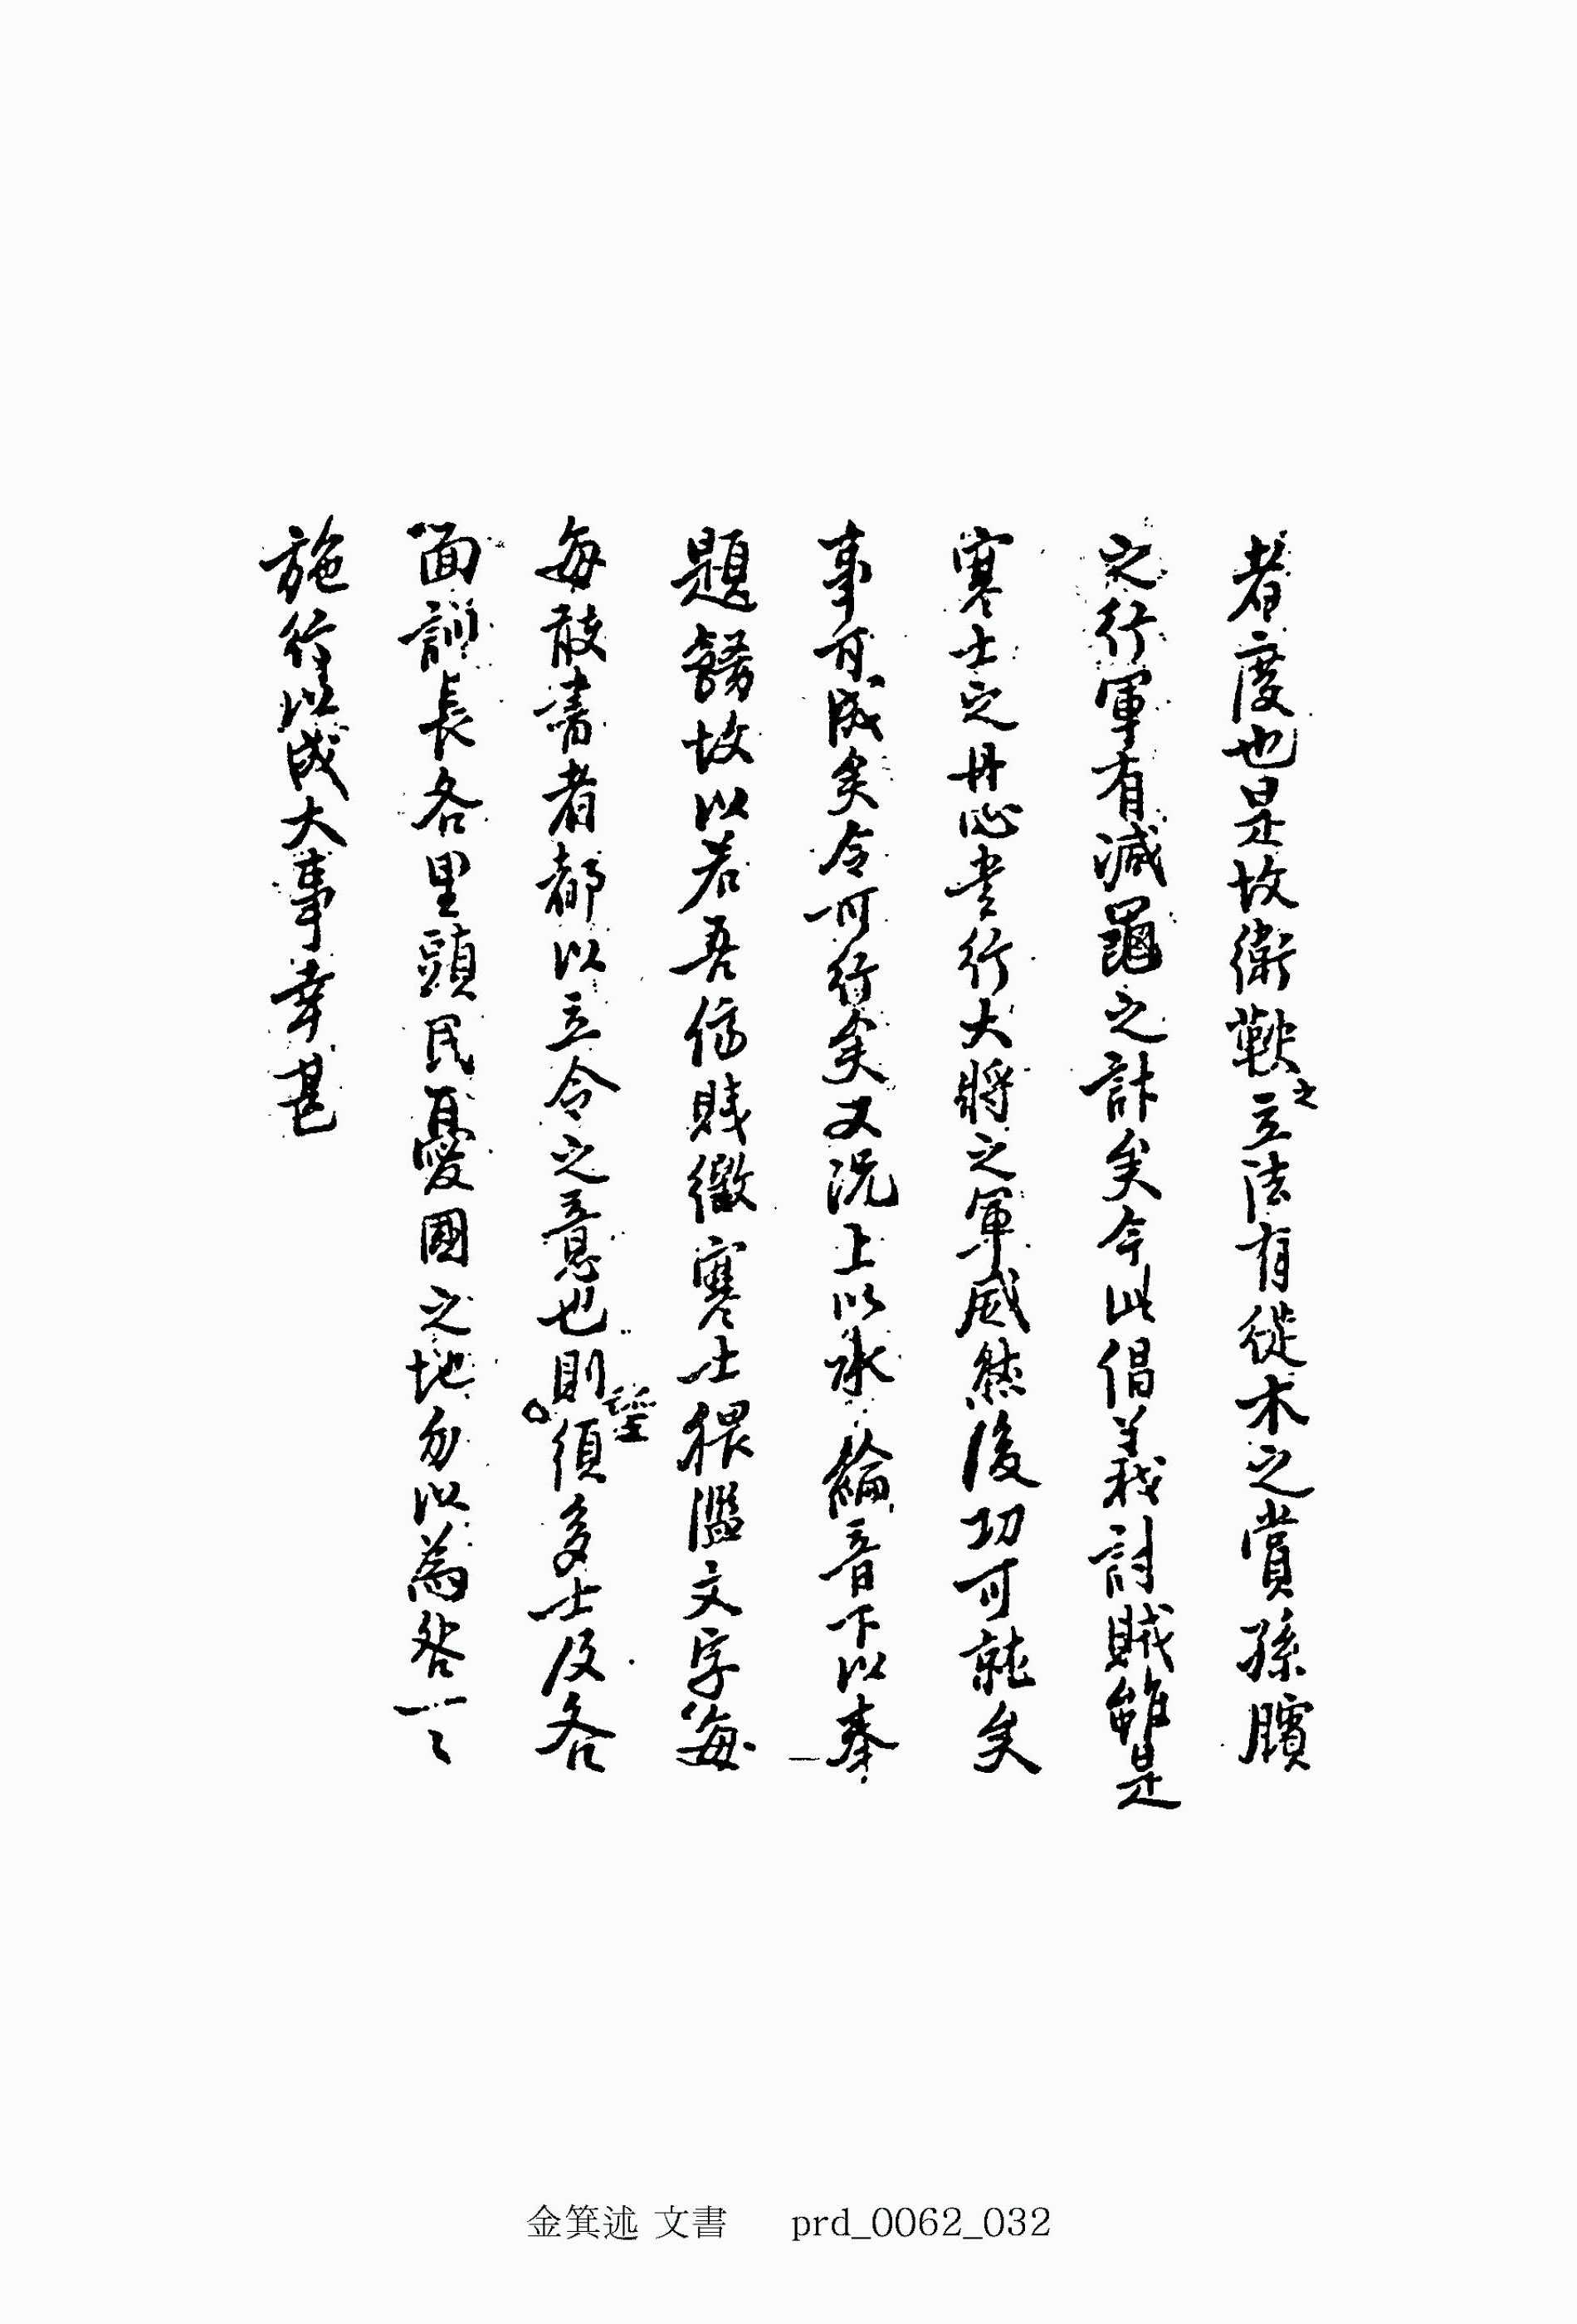 者度也是故衛鞅之立法有徙木之賞孫臏
之行軍有減竈之計矣今此倡義討賊雖是
寒士之丹心畫行大將之軍威然後功可就矣
事可成矣令可行矣又況上以承 綸音下以奉
題辭故以若吾儕賤微寒士猥濫文字每
每散書者都以立令之意也則望須多士及各
面訓長各里頭民憂國之地勿以為咎一々
施行以成大事幸甚
金箕述 文書 prd_0062_032